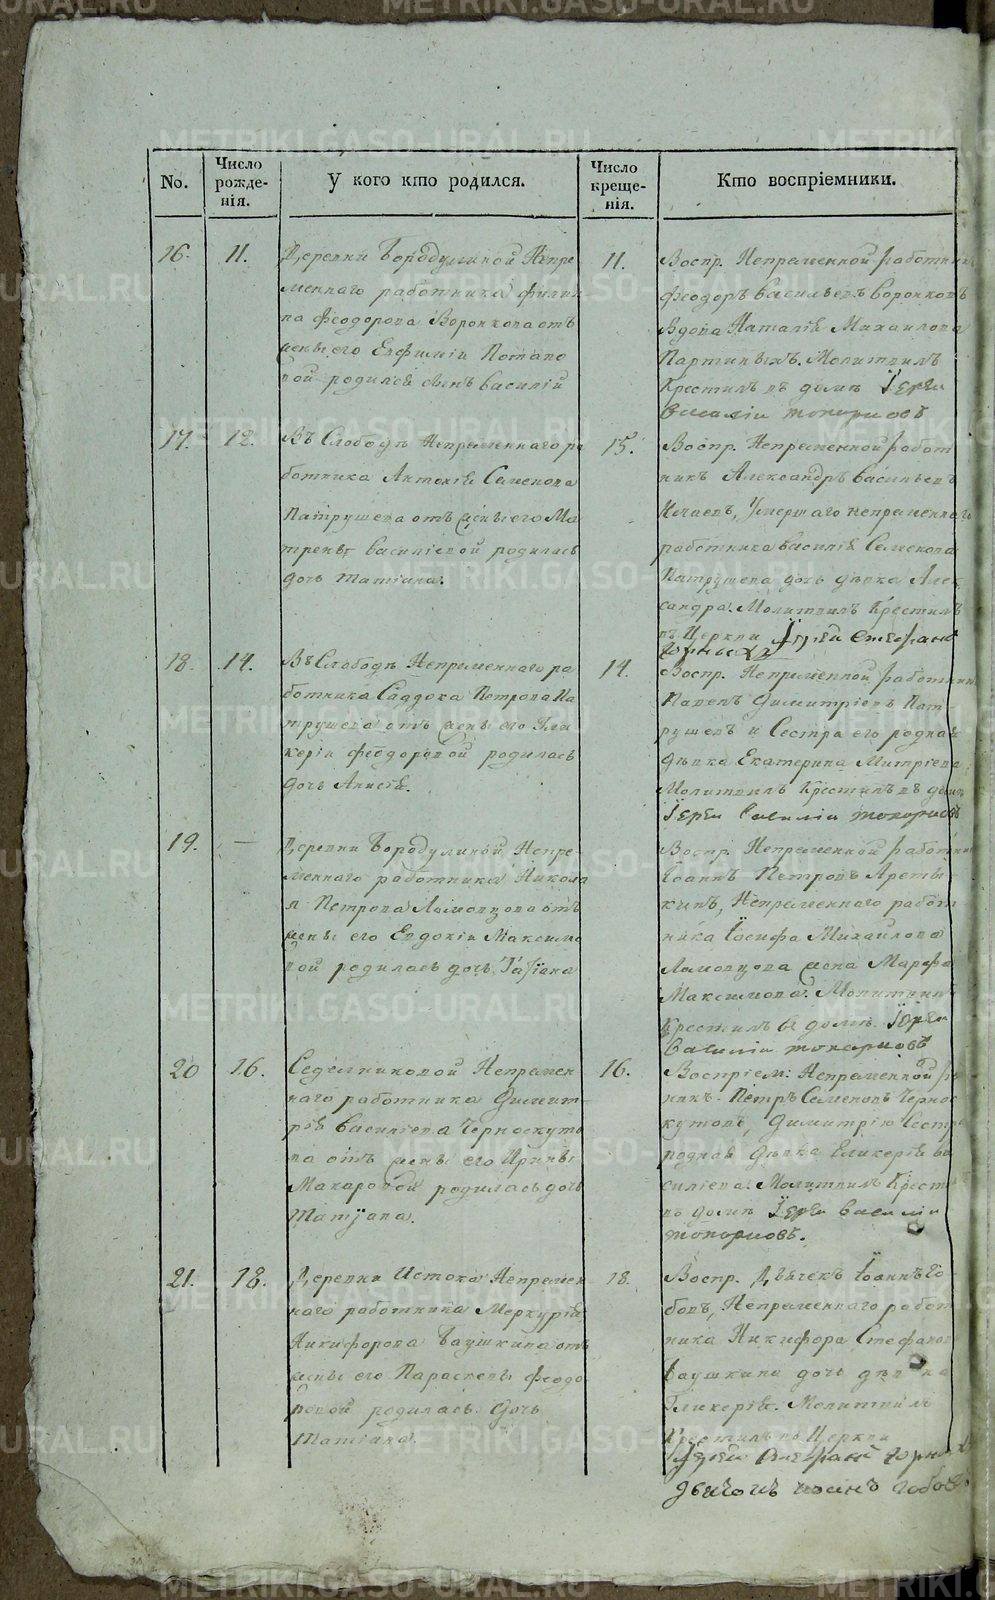 METRIKI.GASO-URAL.RU
No.
Число рожде-
нія.
У кого кто родился.
Число креще-
нія.
Кто воспріемники.
16.
11.
Деревни Бородулиной Непре
меннаго работника Филип
па Феодорова Воронкова отъ
жены его Евфиміи Потапо
вой родился сынъ Василій
11.
Воспр. Непременной работник
Феодоръ Васильевъ Воронковъ
Вдова Наталія Михаилова
Партиныхъ. Молитвилъ
Крестилъ въ доме Іерей
Василій Топорковъ
17.
12.
Въ Слободе Непременнаго ра
ботника Антонія Семенова
Патрушева отъ жены его Ма
трены Василіевой родилась
дочь Татіана.
15.
Воспр. Непременной работ
никъ Александръ Васильевъ
Нечаевъ, Умершаго непременнаго
работника Василія Семенова
Патрушева дочь девка Алек
сандра. Молитвилъ Крестилъ
въ Церкви Іерей Стефанъ
18.
14.
Въ Слободе Непременнаго ра
ботника Саддока Петрова Па
трушева отъ жены его Гли
керіи Феодоровой родилась
дочь Анисія.
14.
Воспр. Непременной работник
Павелъ Димитріевъ Пат
рушевъ и Сестра его родная
девка Екатерина Митріева
Молитвилъ Крестилъ въ доме
Іерей Василій Топорковъ
19.
—
Деревни Бородулиной, Непре-
меннаго работника Никола
я Петрова Ламовцова отъ
жены его Евдокіи Максимо
вой родилась дочь Татіана
Воспр. Непременной работник
Іоаннъ Петровъ Ареты
кинъ, Непременнаго работ
ника Іосифа Михайлова
Ламовцова жена Марфа
Максимова. Молитвилъ
Крестилъ въ доме Іерей
Василій Топорковъ
20
16.
Седелниковой Непремен
наго работника Димит
рія Василіева Черноскуто
ва отъ жены его Ирины
Макаровой родилась дочь
Татіана.
16.
Воспріем: Непременной ра
никъ Петръ Семеновъ Чернос
кутовъ, Димитрію Сестра
родная девка Гликерія Ва
силіева. Молитвилъ Крест
въ доме Іерей Василій
Топорковъ.
21.
18.
Деревни Истока Непремен
наго работника Меркурія
Никифорова Баушкина отъ
жены его Параскевы Феодо
ровой родилась дочь
Татіана.
18.
Воспр. Дьячекъ Іоаннъ Го
бовъ, Непременнаго работ
ника Никифора Стефанов
Баушкина дочь девка
Гликерія. Молитвилъ
Крестилъ въ Церкви
Іерей Стефанъ